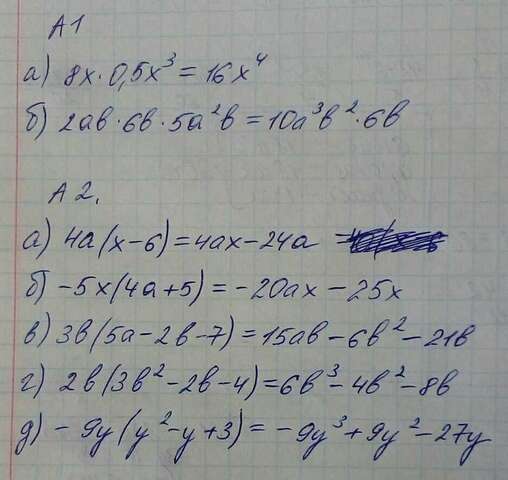 А1
а) 8x·0,5x³=16x⁴
б) 2ab·6b·5a²b=10a³b²·6b
А2.
а) 4a(x-6)=4ax-24a
б) -5x(4a+5)=-20ax-25x
в) 3b(5a-2b-7)=15ab-6b²-21b
г) 2b(3b²-2b-4)=6b³-4b²-8b
д) -9y(y²-y+3)=-9y³+9y²-27y